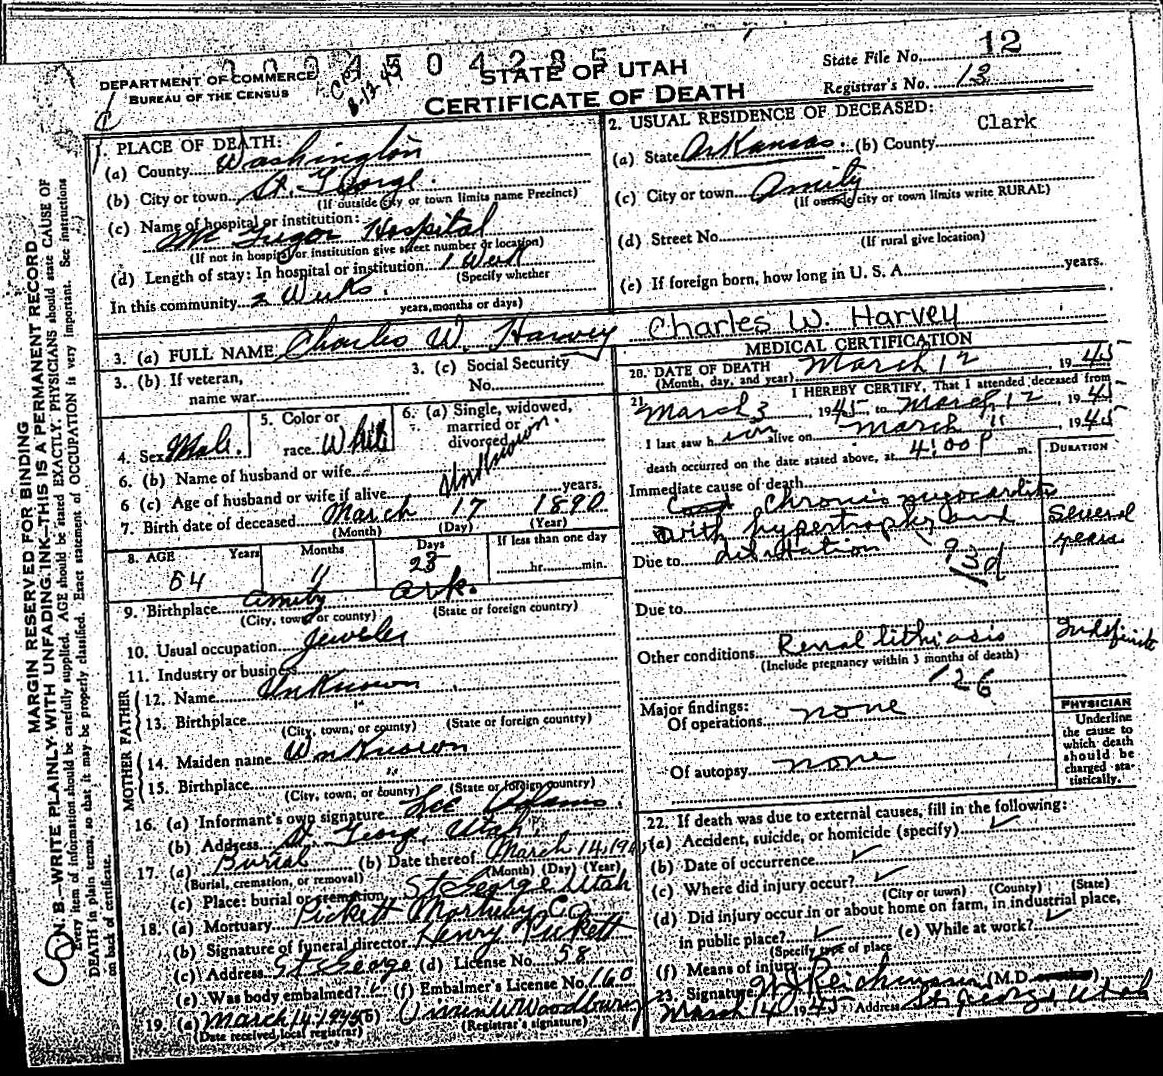 DEPARTMENT OF COMMERCE
BUREAU OF THE CENSUS
STATE OF UTAH
CERTIFICATE OF DEATH
State File No. 12
Registrar's No. 13
1. PLACE OF DEATH:
(a) County Washington
(b) City or town St. George.
(If outside city or town limits name Precinct)
(c) Name of hospital or institution:
Mc Gregor Hospital
(If not in hospital or institution give street number or location)
(d) Length of stay: In hospital or institution 1 Week
(Specify whether
In this community 2 Weeks.
years, months or days)
2. USUAL RESIDENCE OF DECEASED:
(a) State Arkansas (b) County Clark
(c) City or town Amity
(If outside city or town limits write RURAL)
(d) Street No.
(If rural give location)
(e) If foreign born, how long in U. S. A. years.
3. (a) FULL NAME Charles W. Harvey Charles W. Harvey
3. (b) If veteran,
name war
3. (c) Social Security
No.
4. Sex Male.
5. Color or
race White
6. (a) Single, widowed,
married or
divorced Unknown.
6. (b) Name of husband or wife
6 (c) Age of husband or wife if alive years.
7. Birth date of deceased March 17 1890
(Month) (Day) (Year)
8. AGE Years Months Days If less than one day
54 11 23 hr. min.
9. Birthplace Amity Ark.
(City, town or county) (State or foreign country)
10. Usual occupation Jeweler
11. Industry or business
FATHER
12. Name Unknown
13. Birthplace "
(City, town, or county) (State or foreign country)
MOTHER
14. Maiden name Unknown
15. Birthplace "
(City, town, or county) (State or foreign country)
16. (a) Informant's own signature Lee Adams.
(b) Address St. George, Utah.
17. (a) Burial (b) Date thereof March 14, 1945
(Burial, cremation, or removal) (Month) (Day) (Year)
(c) Place: burial or cremation St George Utah
18. (a) Mortuary Pickett Mortuary Co
(b) Signature of funeral director Henry Pickett
(c) Address St George (d) License No. 58
(e) Was body embalmed? ✓ (f) Embalmer's License No. 160
19. (a) March 14, 1945 (b) Woodbury
(Date received local registrar) (Registrar's signature)
MEDICAL CERTIFICATION
20. DATE OF DEATH March 12 1945
(Month, day, and year)
21. I HEREBY CERTIFY, That I attended deceased from
March 3 1945, to March 12, 1945
I last saw him alive on March 11 1945
death occurred on the date stated above, at 4:00 P m.
DURATION
Immediate cause of death
Chronic myocarditis
with hypertrophy and Several years
Due to dilatation
93d
Due to
Other conditions Renal lithiasis Indefinite
(Include pregnancy within 3 months of death)
126
Major findings:
Of operations none
Of autopsy none
PHYSICIAN
Underline
the cause to
which death
should be
charged sta-
tistically.
22. If death was due to external causes, fill in the following:
(a) Accident, suicide, or homicide (specify) ✓
(b) Date of occurrence ✓
(c) Where did injury occur? ✓
(City or town) (County) (State)
(d) Did injury occur in or about home on farm, in industrial place,
in public place? ✓ (e) While at work? ✓
(Specify type of place
(f) Means of injury
23. Signature Reichmann (M.D.
March 14 1945 Address St George Utah
MARGIN RESERVED FOR BINDING
N. B.—WRITE PLAINLY, WITH UNFADING INK—THIS IS A PERMANENT RECORD
Every item of information should be carefully supplied. AGE should be stated EXACTLY. PHYSICIANS should state CAUSE OF
DEATH in plain terms, so that it may be properly classified. Exact statement of OCCUPATION is very important. See instructions
on back of certificate.